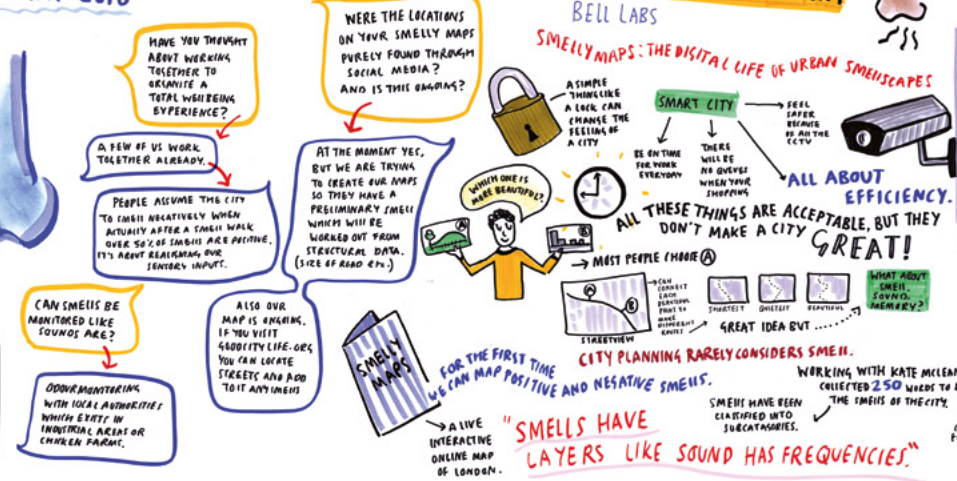 HAVE YOU THOUGHT
ABOUT WORKING
TOGETHER TO
ORGANISE A
TOTAL WELLBEING
EXPERIENCE?
A FEW OF US WORK
TOGETHER ALREADY.
PEOPLE ASSUME THE CITY
TO SMELL NEGATIVELY WHEN
ACTUALLY AFTER A SMELL WALK
OVER 50% OF SMELLS ARE POSITIVE.
IT'S ABOUT REALIGNING OUR
SENSORY INPUTS.
CAN SMELLS BE
MONITORED LIKE
SOUNDS ARE?
ODOUR MONITORING
WITH LOCAL AUTHORITIES
WHICH EXISTS IN
INDUSTRIAL AREAS OR
CHICKEN FARMS.
WERE THE LOCATIONS
ON YOUR SMELLY MAPS
PURELY FOUND THROUGH
SOCIAL MEDIA?
AND IS THIS ONGOING?
AT THE MOMENT YES,
BUT WE ARE TRYING
TO CREATE OUR MAPS
SO THEY HAVE A
PRELIMINARY SMELL
WHICH WILL BE
WORKED OUT FROM
STRUCTURAL DATA.
(SIZE OF ROAD ETC.)
ALSO OUR
MAP IS ONGOING.
IF YOU VISIT
GOODCITYLIFE.ORG
YOU CAN LOCATE
STREETS AND ADD
TO IT ANY SMELLS
BELL LABS
SMELLY MAPS: THE DIGITAL LIFE OF URBAN SMELLSCAPES
A SIMPLE
THING LIKE
A LOCK CAN
CHANGE THE
FEELING OF
A CITY
SMART CITY
FEEL
SAFER
BECAUSE
OF ALL THE
CCTV
BE ON TIME
FOR WORK
EVERYDAY
THERE
WILL BE
NO QUEUES
WHEN YOUR
SHOPPING
ALL ABOUT
EFFICIENCY.
WHICH ONE IS
MORE BEAUTIFUL?
ALL THESE THINGS ARE ACCEPTABLE, BUT THEY
DON'T MAKE A CITY GREAT!
MOST PEOPLE CHOOSE A
A
B
STREETVIEW
CAN
CONNECT
EACH
BEAUTIFUL
POINT TO
MAKE
DIFFERENT
ROUTES
SHORTEST
QUIETEST
BEAUTIFUL
GREAT IDEA BUT........
WHAT ABOUT
SMELL.
SOUND.
MEMORY?
CITY PLANNING RARELY CONSIDERS SMELL.
SMELLY
MAPS
FOR THE FIRST TIME
WE CAN MAP POSITIVE AND NEGATIVE SMELLS.
A LIVE
INTERACTIVE
ONLINE MAP
OF LONDON.
WORKING WITH KATE MCLEAN
COLLECTED 250 WORDS TO
THE SMELLS OF THE CITY.
SMELLS HAVE BEEN
CLASSIFIED INTO
SUBCATAGORIES.
"SMELLS HAVE
LAYERS LIKE SOUND HAS FREQUENCIES."